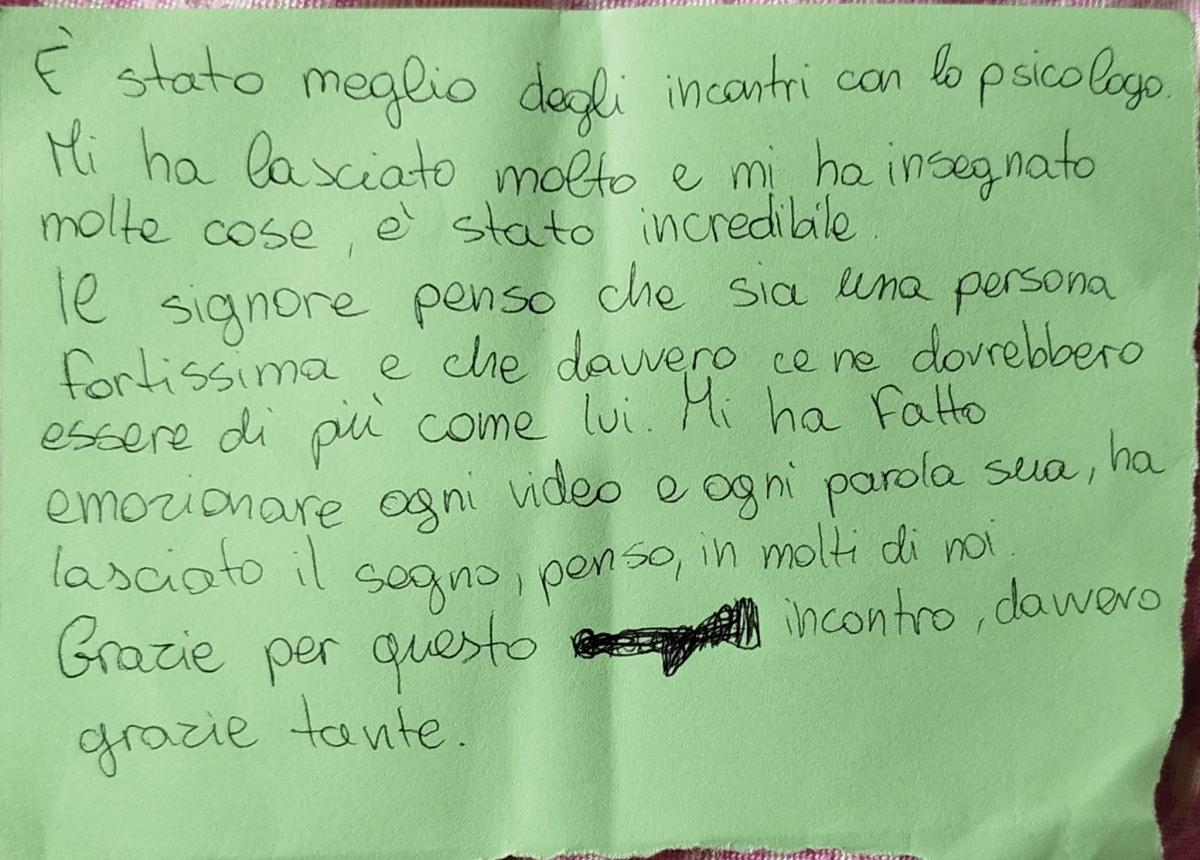 È stato meglio degli incontri con lo psicologo.
Mi ha lasciato molto e mi ha insegnato
molte cose, è stato incredibile.
le signore penso che sia una persona
fortissima e che davvero ce ne dovrebbero
essere di più come lui. Mi ha fatto
emozionare ogni video e ogni parola sua, ha
lasciato il segno, penso, in molti di noi.
Grazie per questo incontro, davvero
grazie tante.